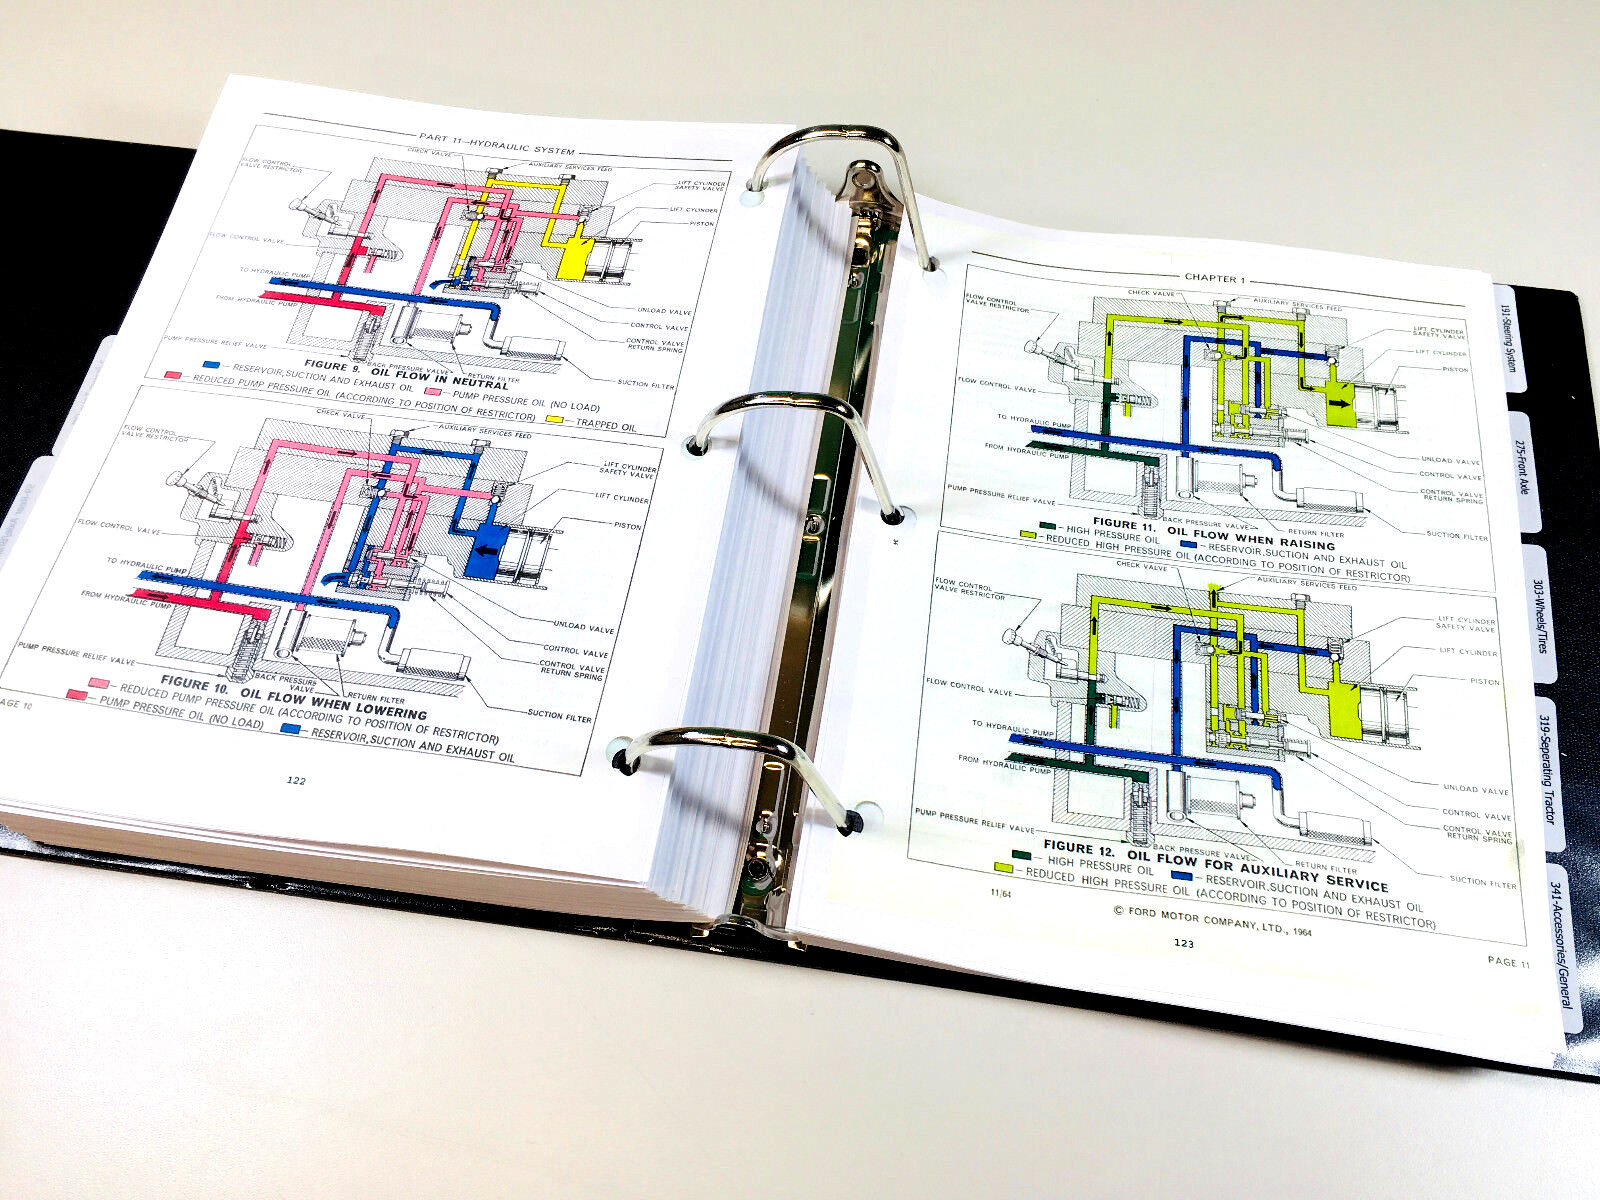 PART 11—HYDRAULIC SYSTEM
CHECK VALVE
FLOW CONTROL
VALVE RESTRICTOR
AUXILIARY SERVICES FEED
LIFT CYLINDER
SAFETY VALVE
LIFT CYLINDER
PISTON
FLOW CONTROL VALVE
TO HYDRAULIC PUMP
FROM HYDRAULIC PUMP
UNLOAD VALVE
CONTROL VALVE
CONTROL VALVE
RETURN SPRING
PUMP PRESSURE RELIEF VALVE
BACK PRESSURE VALVE
RETURN FILTER
SUCTION FILTER
FIGURE 9. OIL FLOW IN NEUTRAL
— RESERVOIR, SUCTION AND EXHAUST OIL
— PUMP PRESSURE OIL (NO LOAD)
— REDUCED PUMP PRESSURE OIL (ACCORDING TO POSITION OF RESTRICTOR)
— TRAPPED OIL
CHECK VALVE
FLOW CONTROL
VALVE RESTRICTOR
AUXILIARY SERVICES FEED
LIFT CYLINDER
SAFETY VALVE
LIFT CYLINDER
PISTON
FLOW CONTROL VALVE
TO HYDRAULIC PUMP
FROM HYDRAULIC PUMP
UNLOAD VALVE
CONTROL VALVE
CONTROL VALVE
RETURN SPRING
PUMP PRESSURE RELIEF VALVE
BACK PRESSURE
VALVE
RETURN FILTER
SUCTION FILTER
FIGURE 10. OIL FLOW WHEN LOWERING
— REDUCED PUMP PRESSURE OIL (ACCORDING TO POSITION OF RESTRICTOR)
— PUMP PRESSURE OIL (NO LOAD)
— RESERVOIR, SUCTION AND EXHAUST OIL
AGE 10
122
CHAPTER 1
CHECK VALVE
FLOW CONTROL
VALVE RESTRICTOR
AUXILIARY SERVICES FEED
LIFT CYLINDER
SAFETY VALVE
LIFT CYLINDER
PISTON
FLOW CONTROL VALVE
TO HYDRAULIC PUMP
FROM HYDRAULIC PUMP
UNLOAD VALVE
CONTROL VALVE
CONTROL VALVE
RETURN SPRING
PUMP PRESSURE RELIEF VALVE
BACK PRESSURE VALVE
RETURN FILTER
SUCTION FILTER
FIGURE 11. OIL FLOW WHEN RAISING
— HIGH PRESSURE OIL
— RESERVOIR, SUCTION AND EXHAUST OIL
— REDUCED HIGH PRESSURE OIL (ACCORDING TO POSITION OF RESTRICTOR)
CHECK VALVE
FLOW CONTROL
VALVE RESTRICTOR
AUXILIARY SERVICES FEED
LIFT CYLINDER
SAFETY VALVE
LIFT CYLINDER
PISTON
FLOW CONTROL VALVE
TO HYDRAULIC PUMP
FROM HYDRAULIC PUMP
UNLOAD VALVE
CONTROL VALVE
CONTROL VALVE
RETURN SPRING
PUMP PRESSURE RELIEF VALVE
BACK PRESSURE VALVE
RETURN FILTER
SUCTION FILTER
FIGURE 12. OIL FLOW FOR AUXILIARY SERVICE
— HIGH PRESSURE OIL
— RESERVOIR, SUCTION AND EXHAUST OIL
— REDUCED HIGH PRESSURE OIL (ACCORDING TO POSITION OF RESTRICTOR)
11/64
© FORD MOTOR COMPANY, LTD., 1964
123
PAGE 11
191-Steering System
275-Front Axle
303-Wheels/Tires
319-Seperating Tractor
341-Accessories/General